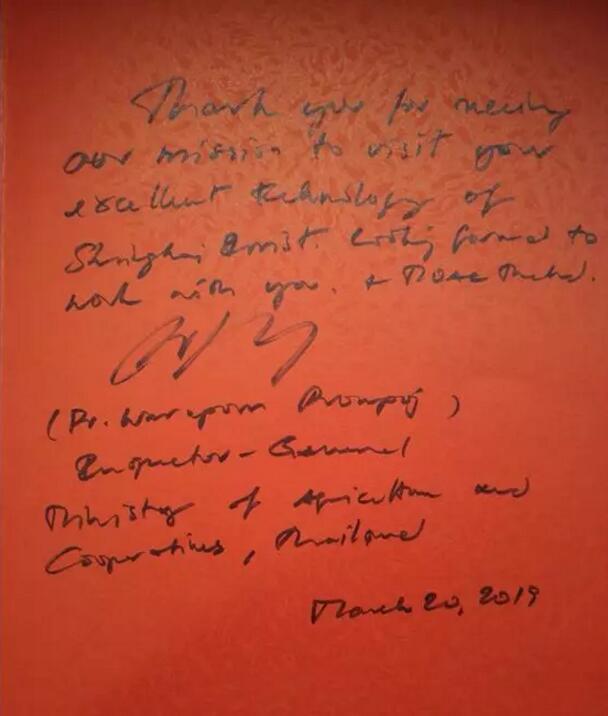 Thank you for
our mission to visit your
excellent technology of
Shanghai Looking forward to
work with you. &
(Dr. Waraporn Prompoj)
Inspector-General
Ministry of Agriculture and
Cooperatives, Thailand
March 20, 2019